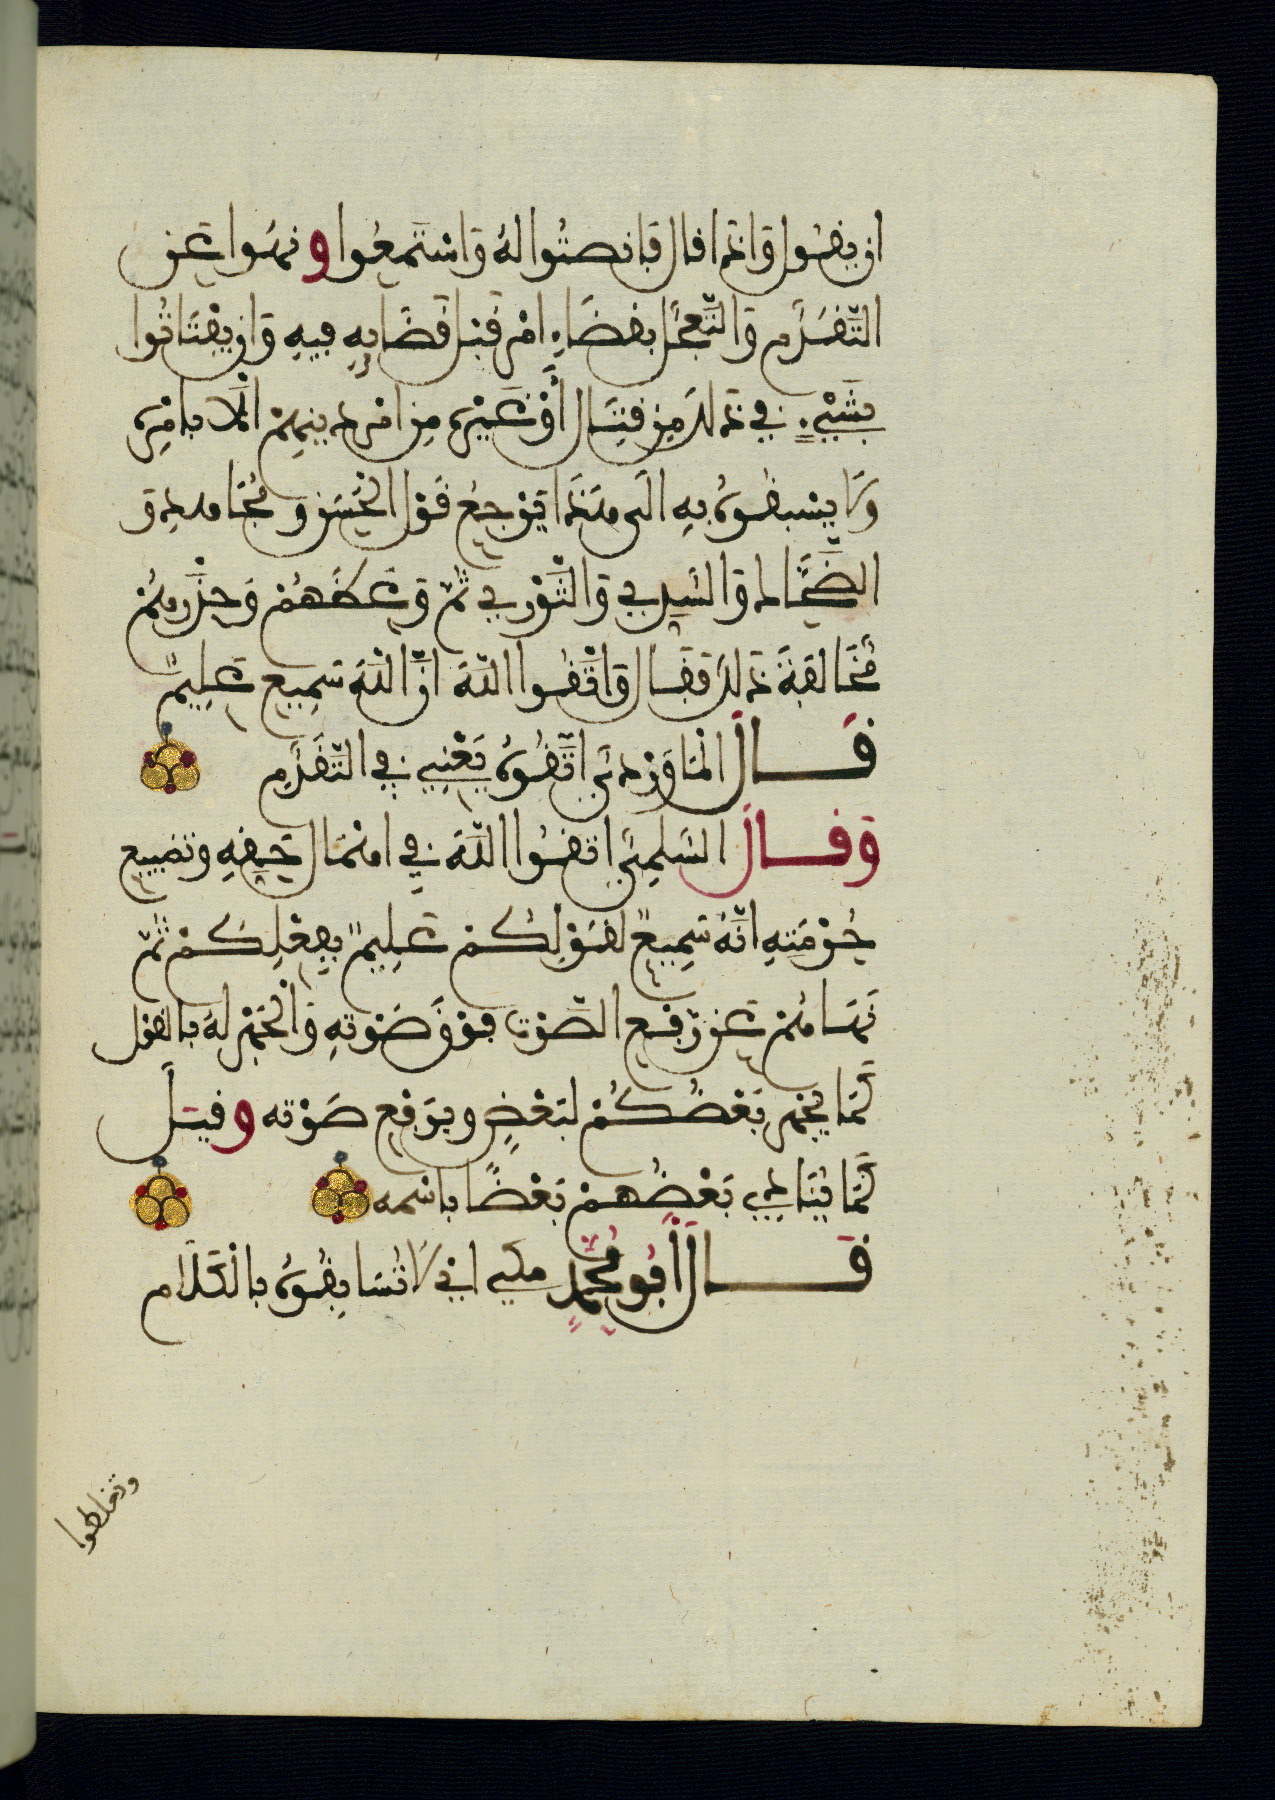 ان يقول وإذا قال فانصتوا له واستمعوا ونهوا عن
التَّقَدُّم والتَّعجُّل بقضاءِ امْر قبْل قضايه فيه وان يفتاتوا
بشَيْءٍ في ذلك من قتال أوْ غَيْره من امْر دينهِمْ الَّا بامْره
ولا يسْبقوه به الى هذا يَرْجع قوْل الحَسَن ومُجَاهد و
الضَّحَّاك والسّدي والثَّوْري ثم وعظهُمْ وحذّرهمْ
مُخَالفةَ ذلك فقال واتَّقُوا اللهَ انَّ اللهَ سَمِيع عَلِيم
قَالَ المَاوَرْدي اتَّقُوه يَعْنِي في التَّقَدُّمِ
وَقالَ السّلمِي اتقُوا اللهَ في اهْمَال حَقِّهِ وتضييع
حُرْمَتهِ انَّهُ سَمِيعٌ لقوْلِكُمْ عَلِيمٌ بفِعْلِكُمْ ثُمّ
نَهَاهُمْ عَن رَفع الصَّوْت فوْق صَوْتهِ وَالجَهْر لهُ بالقول
كَمَا يجْهر بَعْضُكُمْ لبَعْضٍ ويرَفع صَوْته وقيلَ
كَمَا يُنَادي بَعْضُهمْ بَعْضًا باسْمه
قَالَ أَبُو مُحَمَّدٍ مكي اي لَا تُسَابقُوه بالكَلَام
وتغلظوا